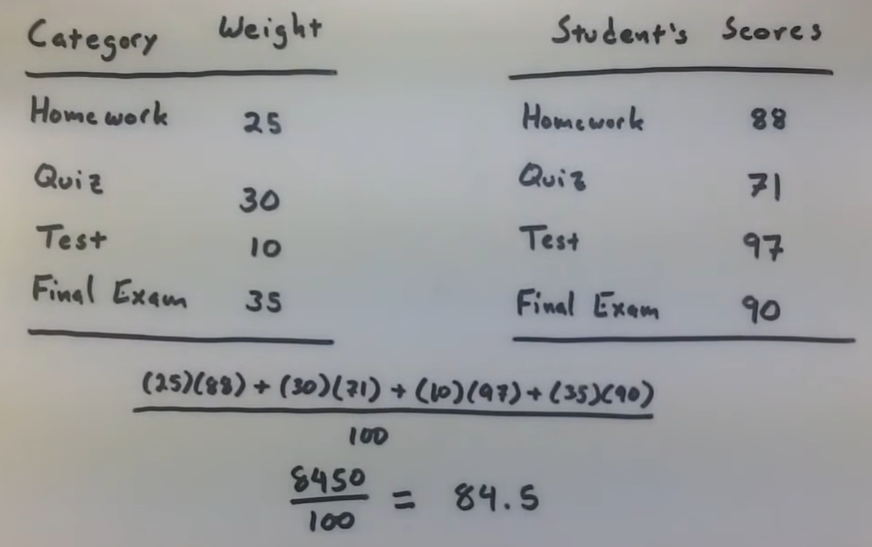 Category Weight
Homework 25
Quiz 30
Test 10
Final Exam 35
Student's Scores
Homework 88
Quiz 71
Test 97
Final Exam 90
(25)(88) + (30)(71) + (10)(97) + (35)(90)
100
8450
100
= 84.5